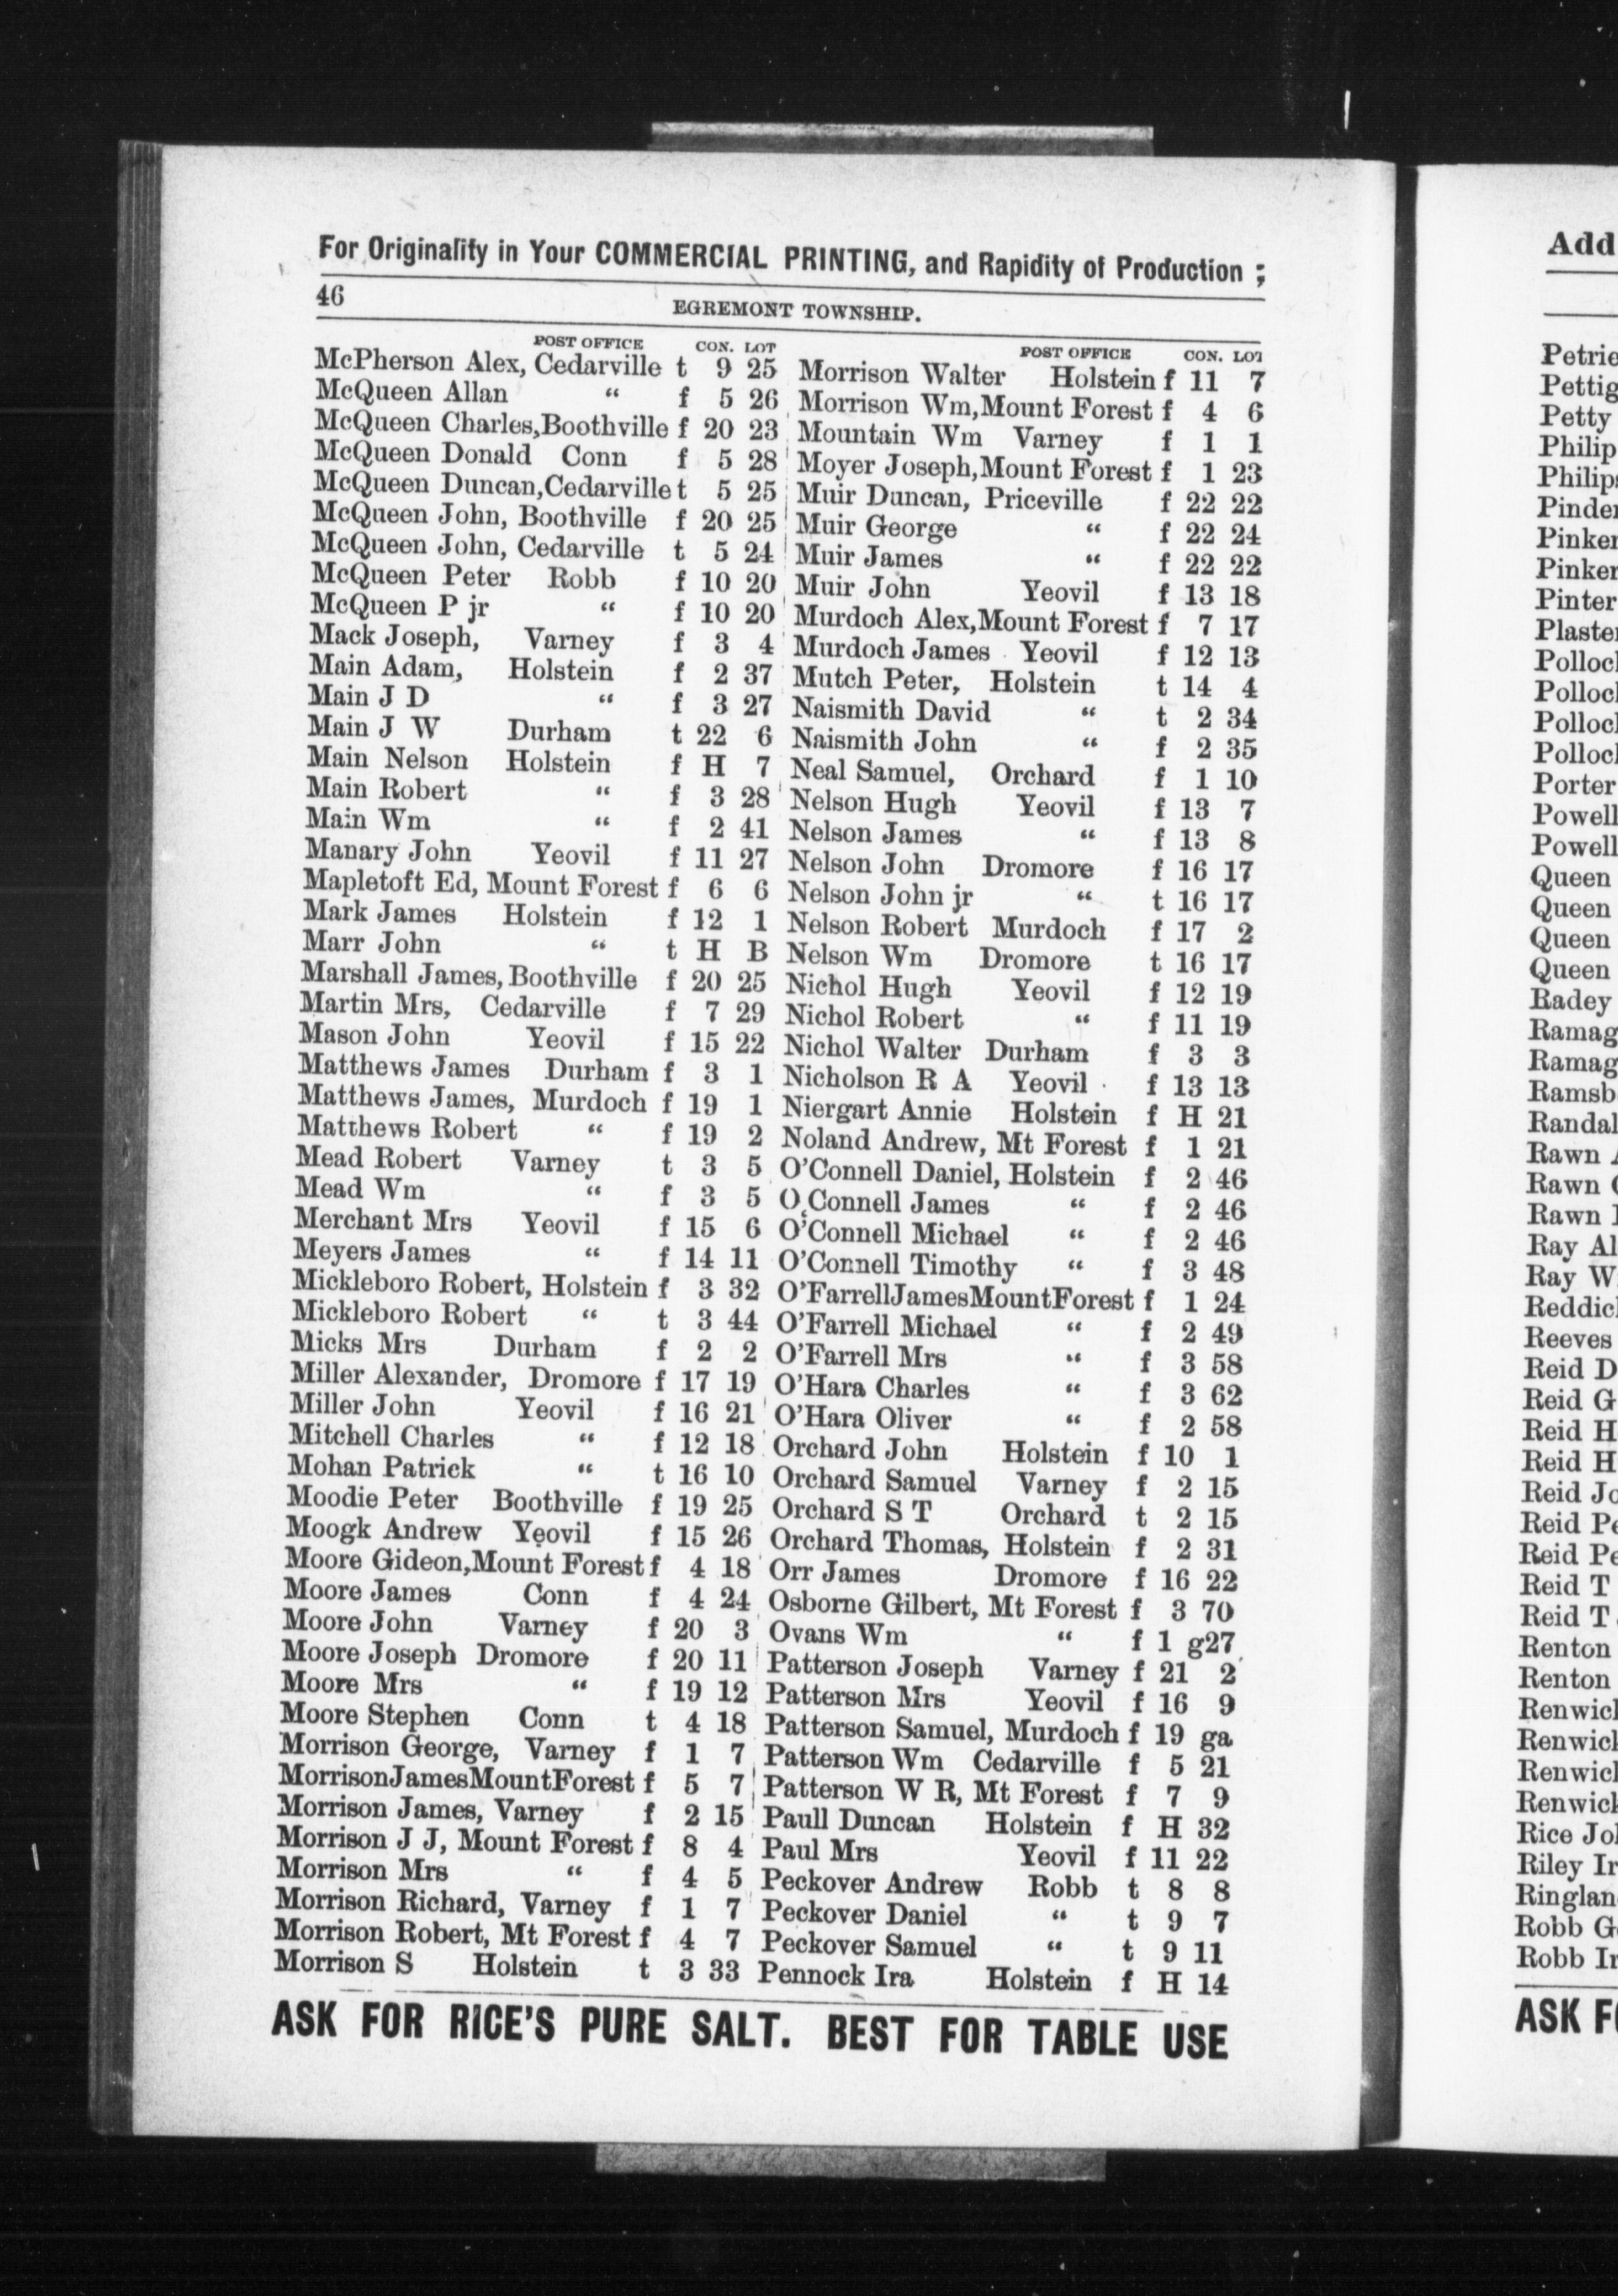 For Originality in Your COMMERCIAL PRINTING, and Rapidity of Production ;
46
EGREMONT TOWNSHIP.
POST OFFICE CON. LOT
McPherson Alex, Cedarville t 9 25
McQueen Allan “ f 5 26
McQueen Charles, Boothville f 20 23
McQueen Donald Conn f 5 28
McQueen Duncan, Cedarville t 5 25
McQueen John, Boothville f 20 25
McQueen John, Cedarville t 5 24
McQueen Peter Robb f 10 20
McQueen P jr “ f 10 20
Mack Joseph, Varney f 3 4
Main Adam, Holstein f 2 37
Main J D “ f 3 27
Main J W Durham t 22 6
Main Nelson Holstein f H 7
Main Robert “ f 3 28
Main Wm “ f 2 41
Manary John Yeovil f 11 27
Mapletoft Ed, Mount Forest f 6 6
Mark James Holstein f 12 1
Marr John “ t H B
Marshall James, Boothville f 20 25
Martin Mrs, Cedarville f 7 29
Mason John Yeovil f 15 22
Matthews James Durham f 3 1
Matthews James, Murdoch f 19 1
Matthews Robert “ f 19 2
Mead Robert Varney t 3 5
Mead Wm “ f 3 5
Merchant Mrs Yeovil f 15 6
Meyers James “ f 14 11
Mickleboro Robert, Holstein f 3 32
Mickleboro Robert “ t 3 44
Micks Mrs Durham f 2 2
Miller Alexander, Dromore f 17 19
Miller John Yeovil f 16 21
Mitchell Charles “ f 12 18
Mohan Patrick “ t 16 10
Moodie Peter Boothville f 19 25
Moogk Andrew Yeovil f 15 26
Moore Gideon, Mount Forest f 4 18
Moore James Conn f 4 24
Moore John Varney f 20 3
Moore Joseph Dromore f 20 11
Moore Mrs “ f 19 12
Moore Stephen Conn t 4 18
Morrison George, Varney f 1 7
MorrisonJamesMountForest f 5 7
Morrison James, Varney f 2 15
Morrison J J, Mount Forest f 8 4
Morrison Mrs “ f 4 5
Morrison Richard, Varney f 1 7
Morrison Robert, Mt Forest f 4 7
Morrison S Holstein t 3 33
POST OFFICE CON. LOT
Morrison Walter Holstein f 11 7
Morrison Wm, Mount Forest f 4 6
Mountain Wm Varney f 1 1
Moyer Joseph, Mount Forest f 1 23
Muir Duncan, Priceville f 22 22
Muir George “ f 22 24
Muir James “ f 22 22
Muir John Yeovil f 13 18
Murdoch Alex, Mount Forest f 7 17
Murdoch James Yeovil f 12 13
Mutch Peter, Holstein t 14 4
Naismith David “ t 2 34
Naismith John “ f 2 35
Neal Samuel, Orchard f 1 10
Nelson Hugh Yeovil f 13 7
Nelson James “ f 13 8
Nelson John Dromore f 16 17
Nelson John jr “ t 16 17
Nelson Robert Murdoch f 17 2
Nelson Wm Dromore t 16 17
Nichol Hugh Yeovil f 12 19
Nichol Robert “ f 11 19
Nichol Walter Durham f 3 3
Nicholson R A Yeovil f 13 13
Niergart Annie Holstein f H 21
Noland Andrew, Mt Forest f 1 21
O'Connell Daniel, Holstein f 2 46
O,Connell James “ f 2 46
O'Connell Michael “ f 2 46
O'Connell Timothy “ f 3 48
O'FarrellJamesMountForest f 1 24
O'Farrell Michael “ f 2 49
O'Farrell Mrs “ f 3 58
O'Hara Charles “ f 3 62
O'Hara Oliver “ f 2 58
Orchard John Holstein f 10 1
Orchard Samuel Varney f 2 15
Orchard S T Orchard t 2 15
Orchard Thomas, Holstein f 2 31
Orr James Dromore f 16 22
Osborne Gilbert, Mt Forest f 3 70
Ovans Wm “ f 1 g27
Patterson Joseph Varney f 21 2
Patterson Mrs Yeovil f 16 9
Patterson Samuel, Murdoch f 19 ga
Patterson Wm Cedarville f 5 21
Patterson W R, Mt Forest f 7 9
Paull Duncan Holstein f H 32
Paul Mrs Yeovil f 11 22
Peckover Andrew Robb t 8 8
Peckover Daniel “ t 9 7
Peckover Samuel “ t 9 11
Pennock Ira Holstein f H 14
ASK FOR RICE'S PURE SALT. BEST FOR TABLE USE
Add
Petrie
Pettig
Petty
Philip
Philip
Pinder
Pinker
Pinker
Pinter
Plaster
Polloc
Polloc
Polloc
Polloc
Porter
Powell
Powell
Queen
Queen
Queen
Queen
Radey
Ramag
Ramag
Ramsb
Randal
Rawn
Rawn
Rawn
Ray Al
Ray W
Reddic
Reeves
Reid D
Reid G
Reid H
Reid H
Reid Jo
Reid Pe
Reid Pe
Reid T
Reid T
Renton
Renton
Renwic
Renwic
Renwic
Renwic
Rice Jo
Riley Ir
Ringlan
Robb G
Robb Ir
ASK F